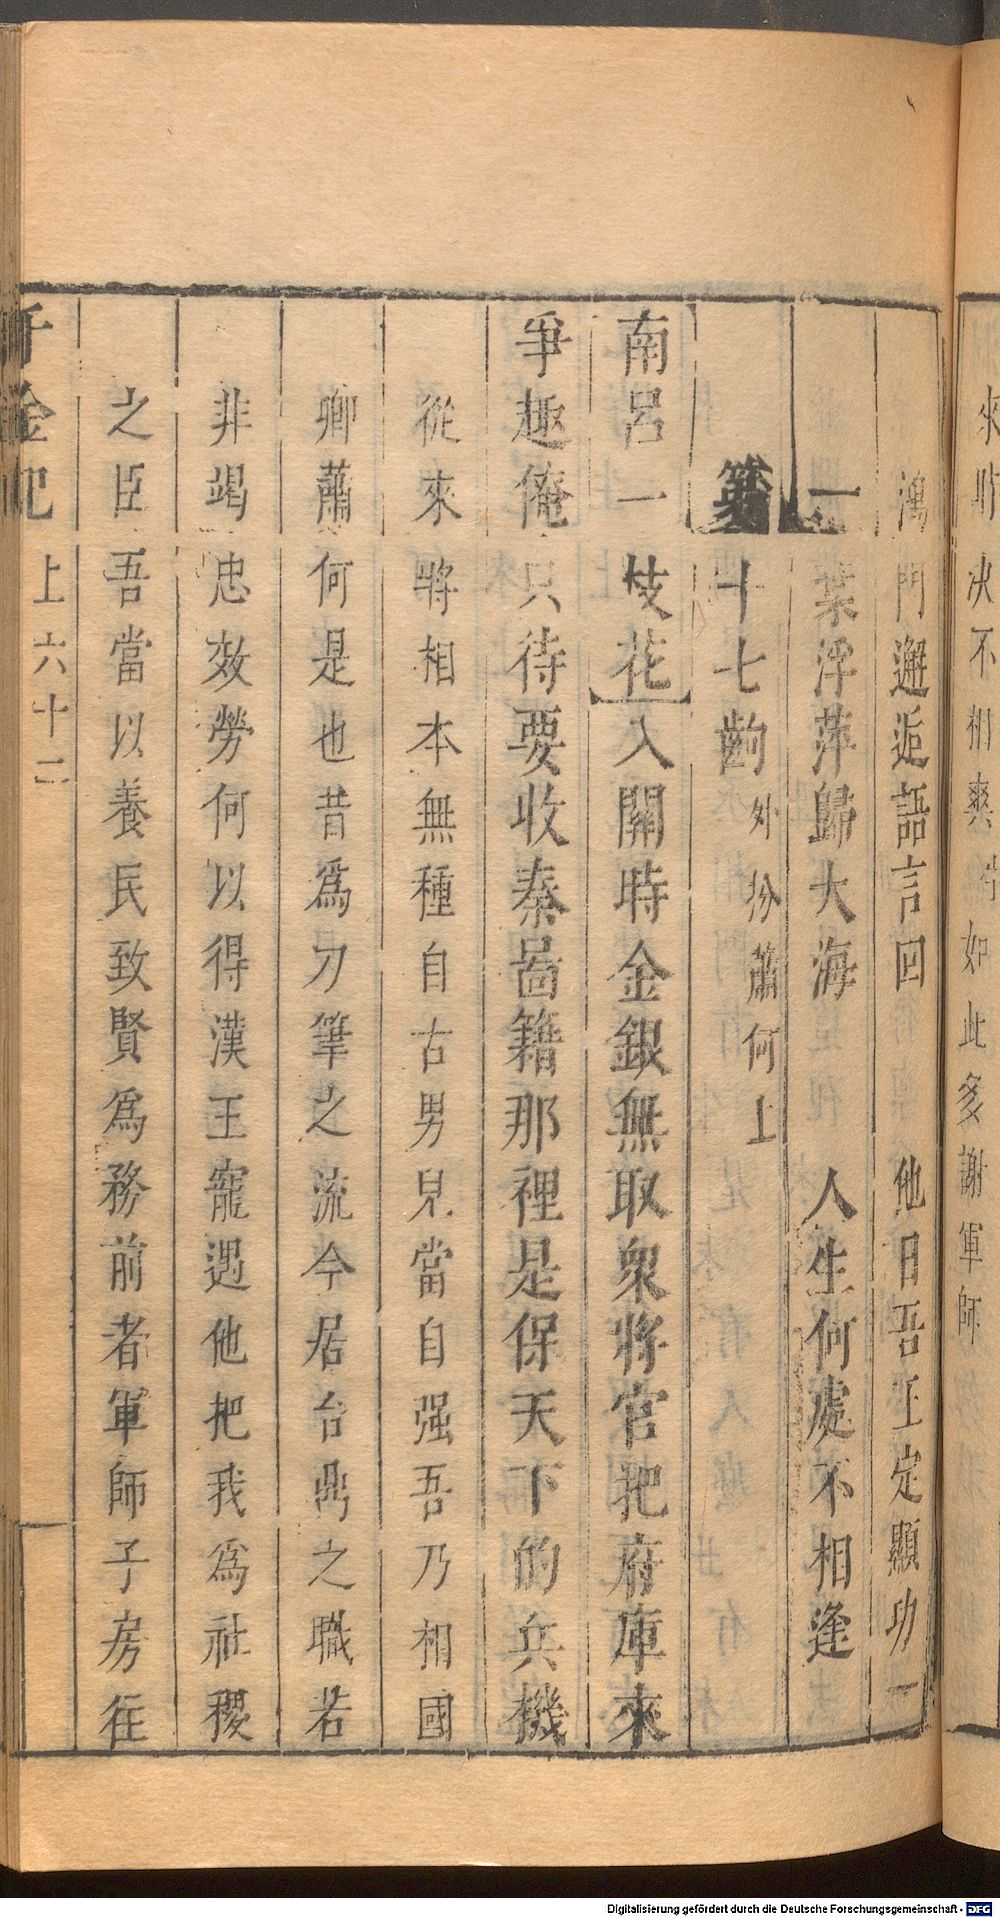 來時決不相爽 如此多謝軍師
鴻門邂逅語言回 他日吾王定顯功
一葉浮萍歸大海 人生何處不相逢
第十七齣 外扮蕭何上
南呂一枝花 入關時金銀無取衆將官把府庫來
爭趣俺只待要收秦啚籍那裡是保天下的兵機
從來將相本無種自古男兒當自强吾乃相國
卿蕭何是也昔爲刀筆之流今居台鼎之職若
非竭忠效勞何以得漢王寵遇他把我爲社稷
之臣吾當以養民致賢爲務前者軍師子房往
千金記 上 六十二
Digitalisierung gefördert durch die Deutsche Forschungsgemeinschaft - DFG